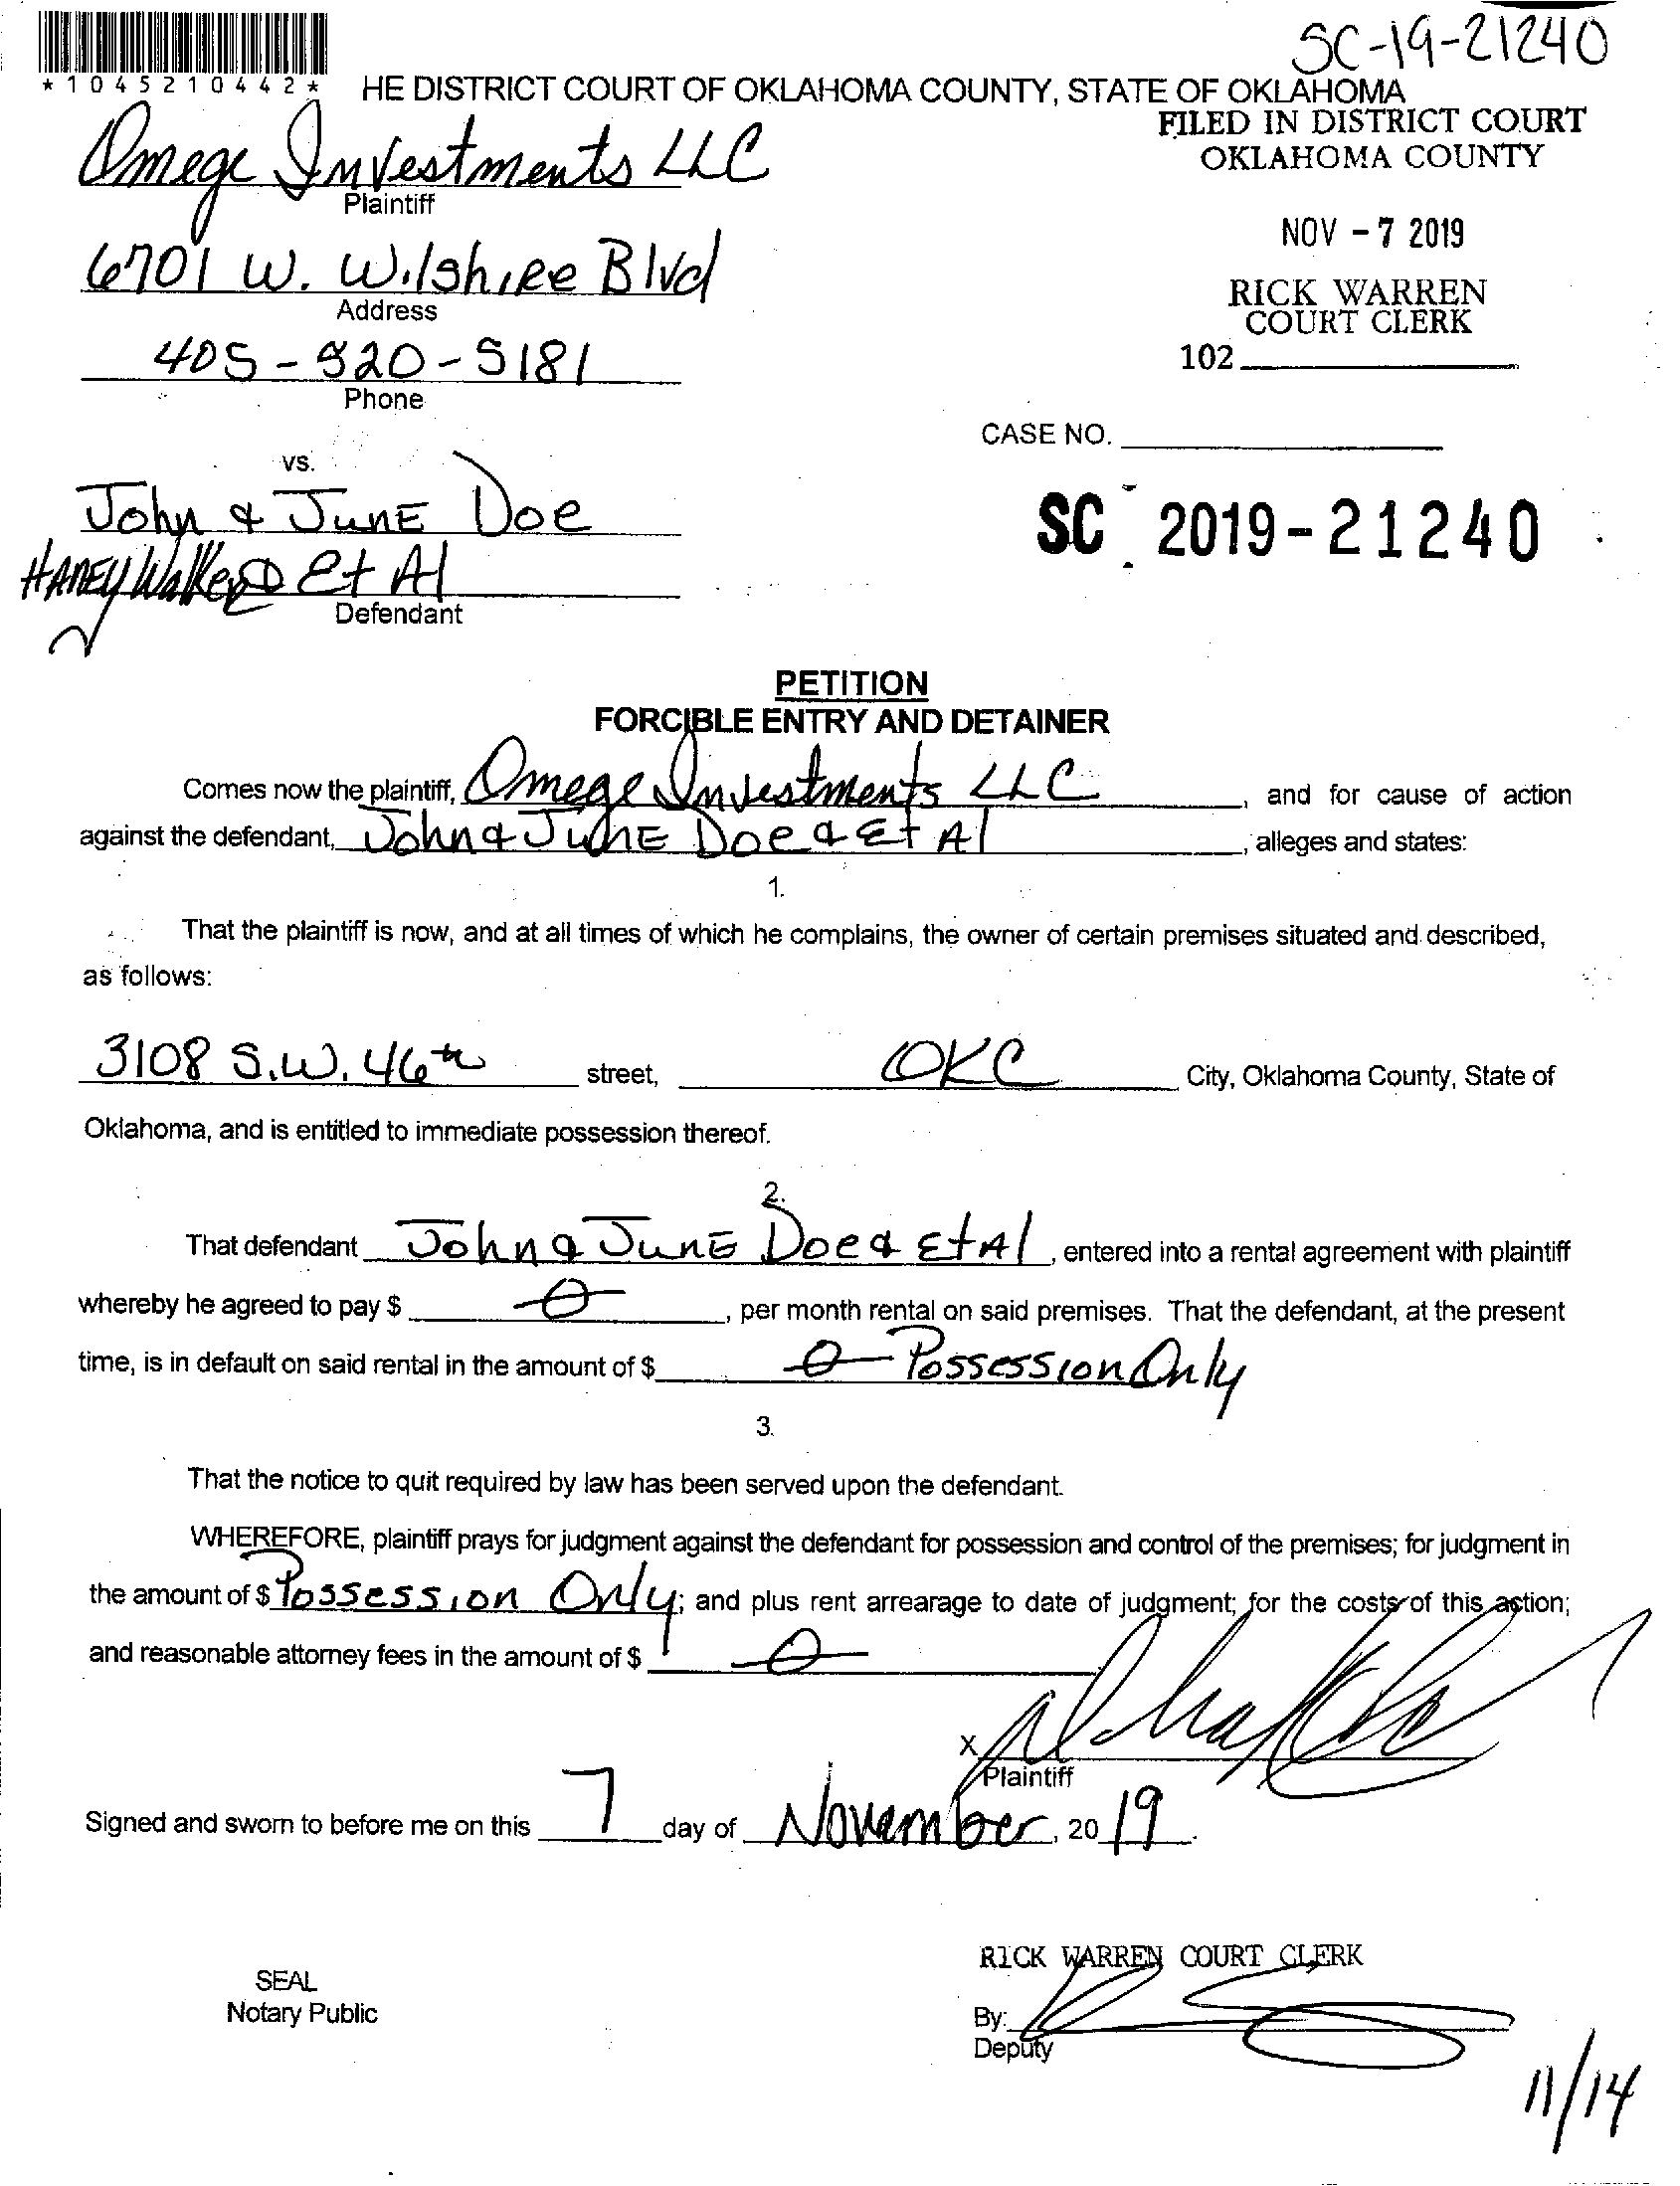 SC-19-21240
*1045210442*
HE DISTRICT COURT OF OKLAHOMA COUNTY, STATE OF OKLAHOMA
FILED IN DISTRICT COURT
OKLAHOMA COUNTY
Omege Investments LLC
Plaintiff
NOV - 7 2019
6701 W. Wilshire Blvd
Address
RICK WARREN
COURT CLERK
405-820-5181
Phone
102
CASE NO.
vs.
John & JunE Doe
SC 2019-21240
Et Al
Defendant
PETITION
FORCIBLE ENTRY AND DETAINER
Comes now the plaintiff, Omege Investments LLC, and for cause of action
against the defendant, John & JunE Doe & Et Al, alleges and states:
1.
That the plaintiff is now, and at all times of which he complains, the owner of certain premises situated and described,
as follows:
3108 S.W. 46th street, OKC City, Oklahoma County, State of
Oklahoma, and is entitled to immediate possession thereof.
2.
That defendant John & JunE Doe & Et Al, entered into a rental agreement with plaintiff
whereby he agreed to pay $ 0, per month rental on said premises. That the defendant, at the present
time, is in default on said rental in the amount of $ 0 Possession Only
3.
That the notice to quit required by law has been served upon the defendant.
WHEREFORE, plaintiff prays for judgment against the defendant for possession and control of the premises; for judgment in
the amount of $ Possession Only; and plus rent arrearage to date of judgment; for the costs of this action;
and reasonable attorney fees in the amount of $ 0
X
Plaintiff
Signed and sworn to before me on this 7 day of November, 20 19.
RICK WARREN COURT CLERK
SEAL
Notary Public
By:
Deputy
11/14